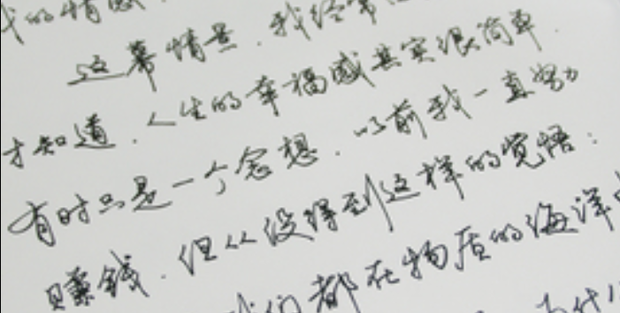 的情感
这幕情景，我经常
才知道，人生的幸福感其实很简单，
有时只是一个念想，以前我一直努力
赚钱，但从没得到这样的觉悟：
我们都在物质的海洋中
为什么